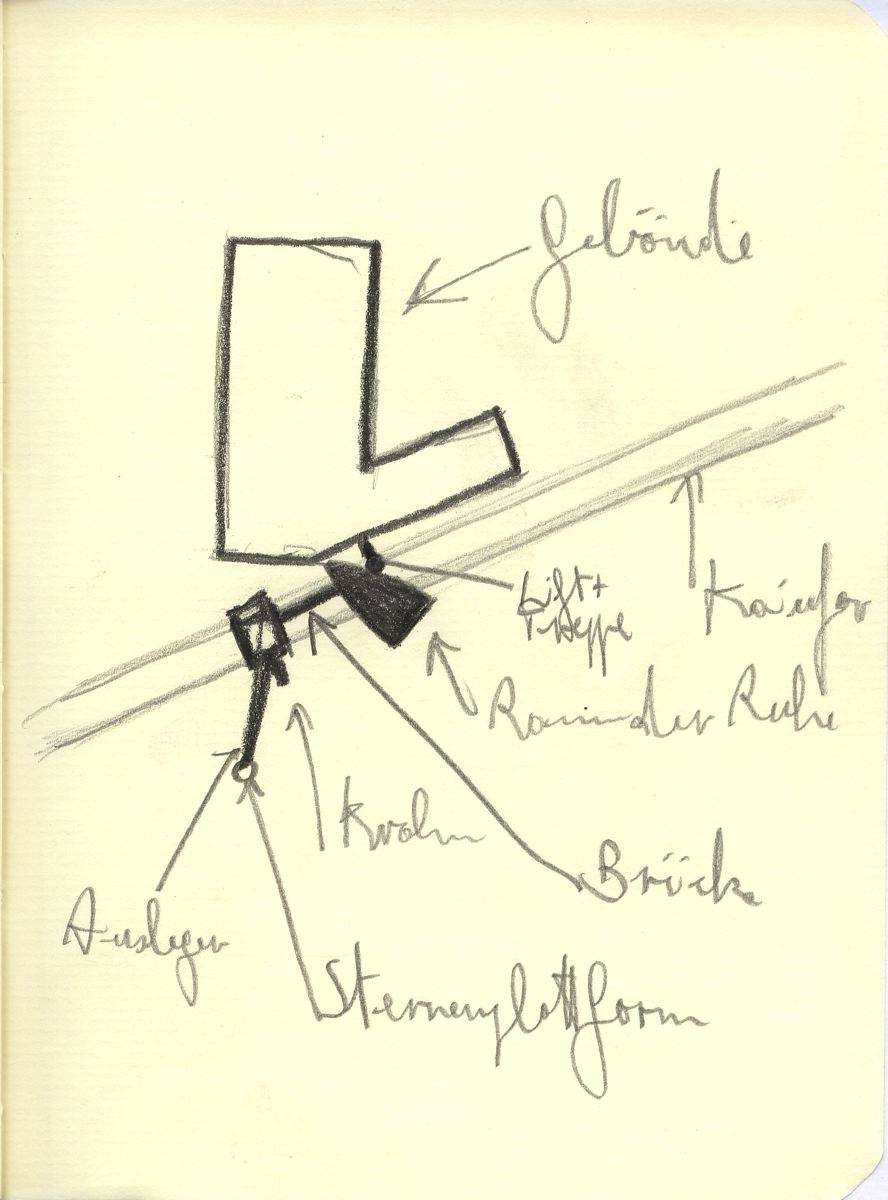 Gebäude
Lift +
Treppe
Kaiufer
Raum der Ruhe
Krahn
Brücke
Ausleger
Sternenplattform